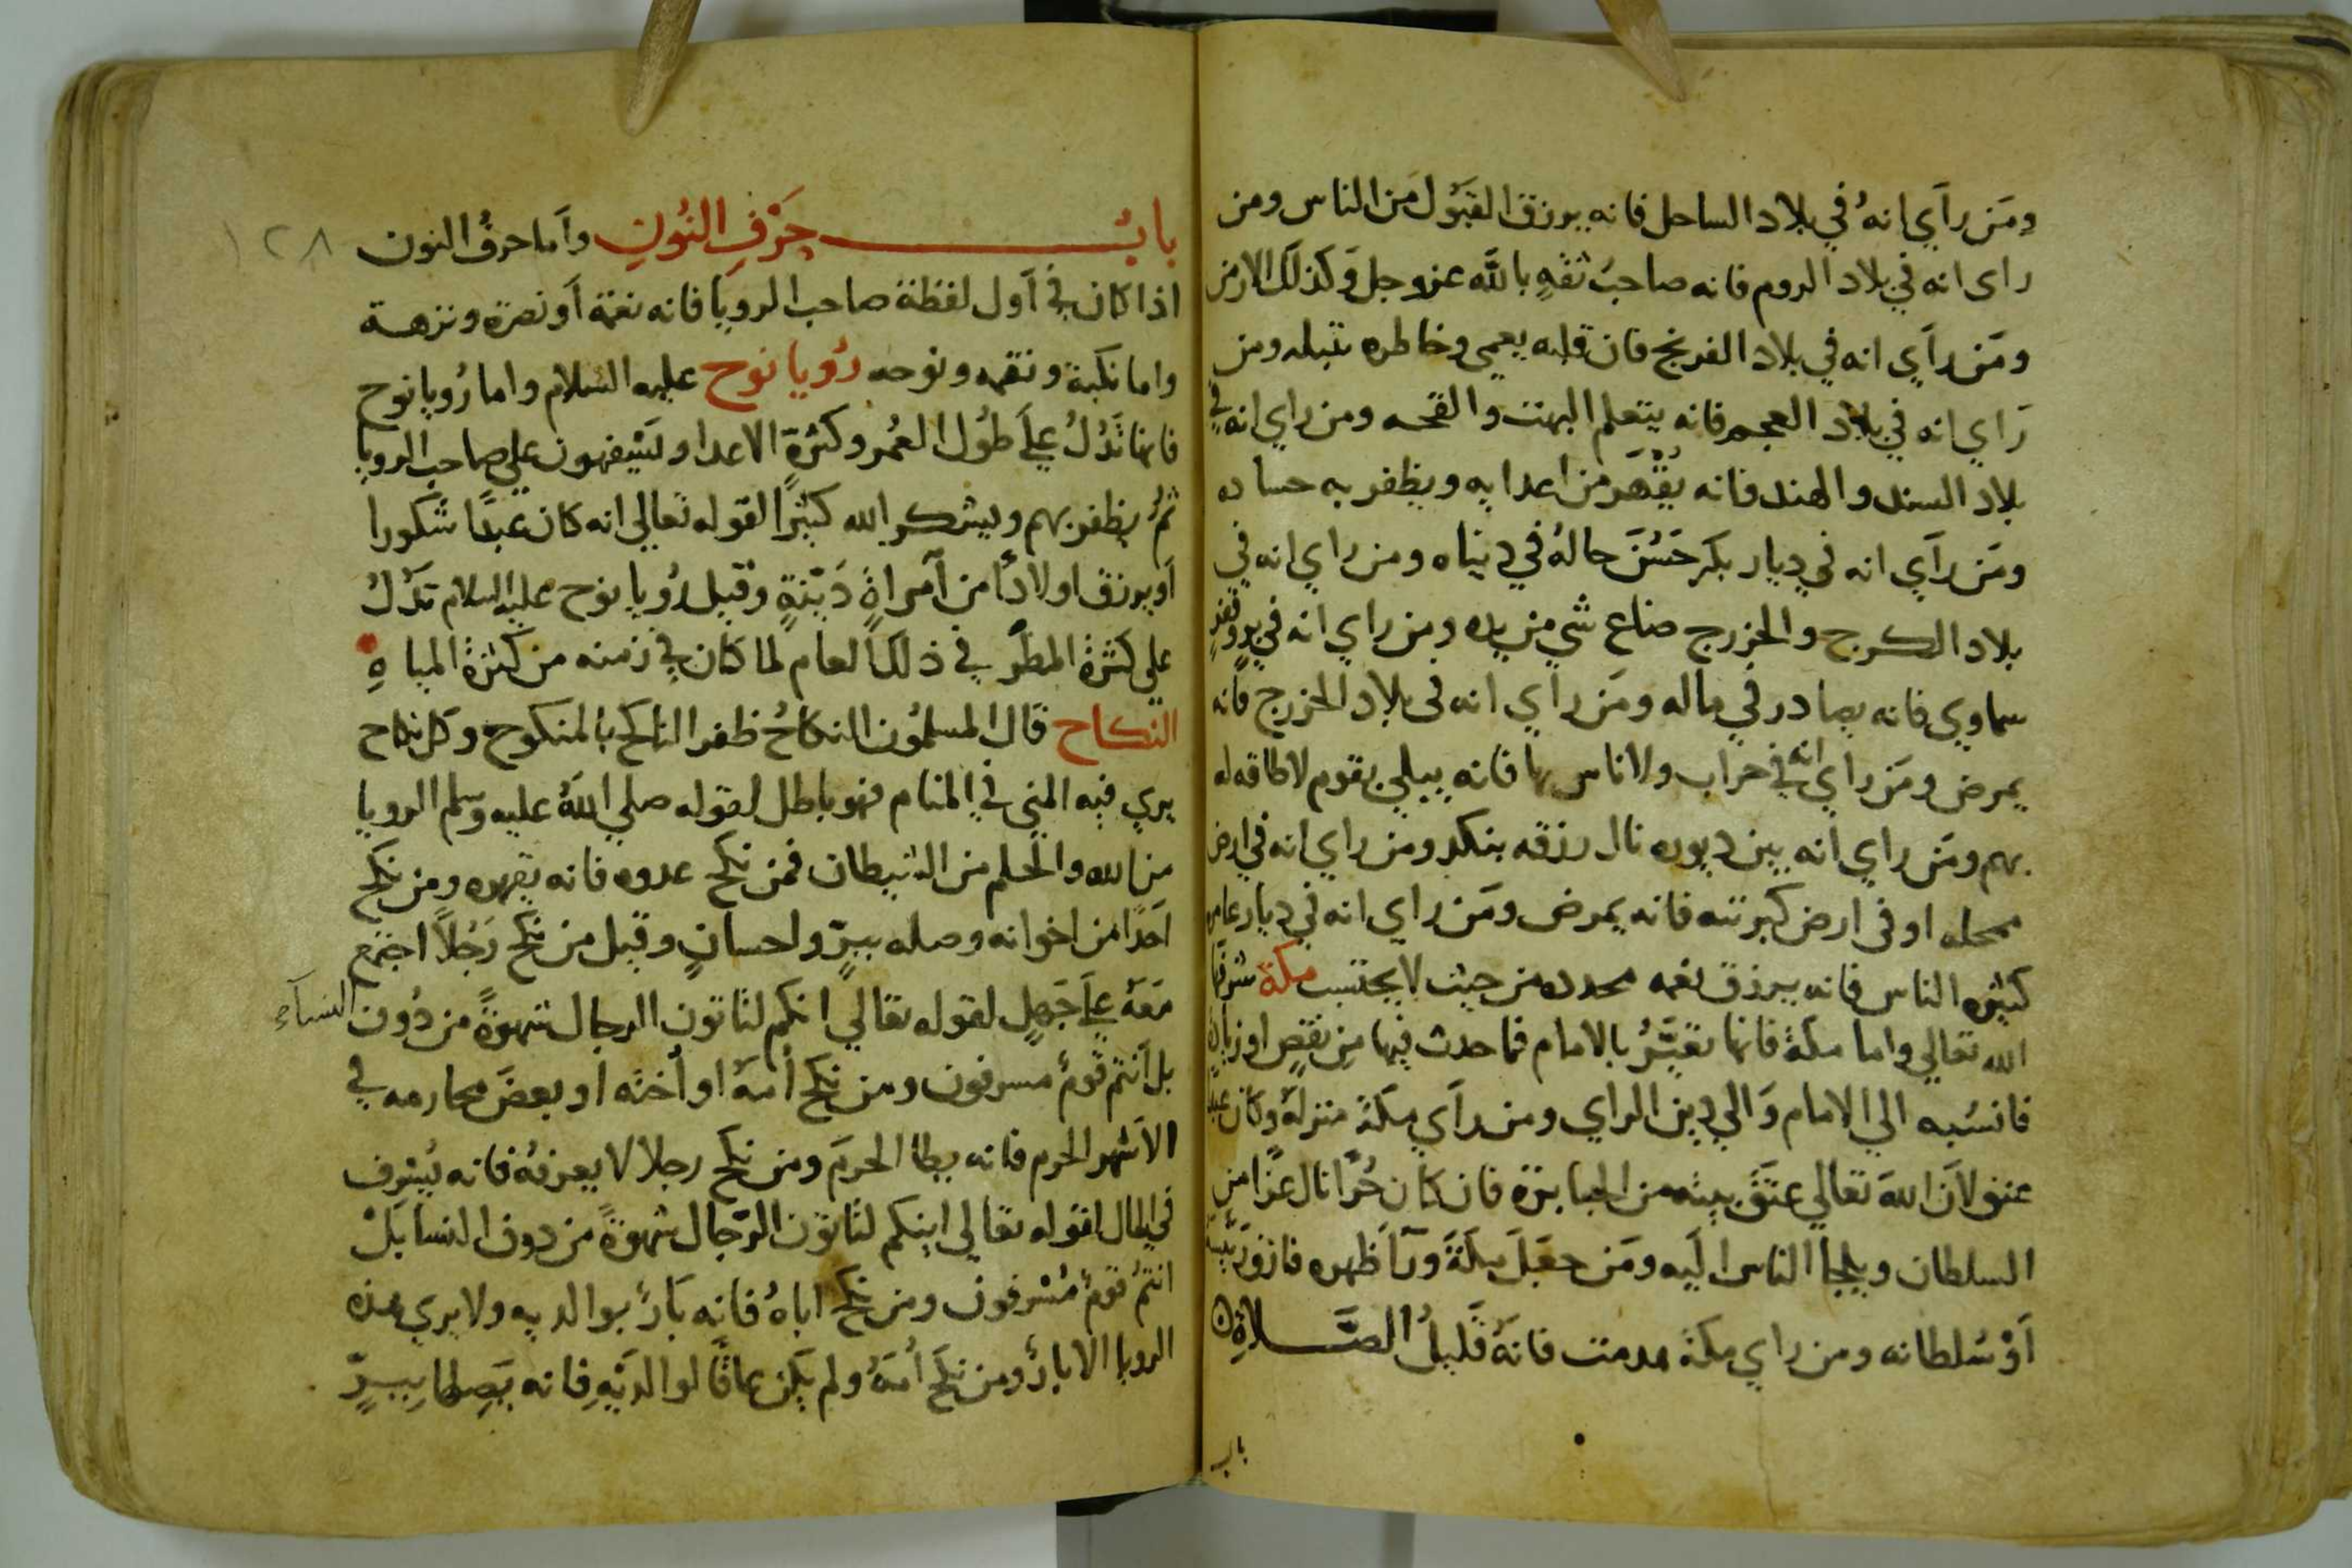 ومَن رآي انهُ في بلاد الساحل فانه يرزق القبَول مَن الناس ومن
راى انه في بلاد الروم فانه صاحبُ ثقهٍ بالله عزوجل وَكذلك الارمن
ومَن رآي انه في بلاد الفرنج فان قلبه يعمي وخاطره ومن
رَاي انه في بلاد العجم فانه يتعلم البهت والقحه ومن راي انه في
بلاد السند والهند فانه يُقهَر من اعدايه ويظفر به حساده
ومَن رآي انه في ديار بكر حَسُنَ حالهُ في دنياه ومن راي انه في
بلاد الكرج والخزرج ضاع شي من يده ومن راي انه في
سماوي فانه يصادر في ماله ومَن راي انه في بلاد الخزرج فانه
يمرض ومَن راي انه في خراب ولا ناس بها فانه يبلي بقوم لا طاقه له
بهم ومَن راي انه بين ديوره نال رزقه بنكد ومن راي انه في ارض
محله او في ارض كبرتته فانه يمرض ومَن راي انه في ديار عامره
كثيره الناس فانه يرزق نعمه مجدده من حيث لا يحتسب مكة شرفها
الله تعالي واما مكة فانها تعبَّرُ بالامام فما حدث فيها مِن نقصٍ او زيادة
فانسُبه الي الامام وَالي دين الراي ومن رآي مكَة منزله وكان عبدا
عتق لآن اللهَ تعالي عتَقَ بيته من الجبابرة فان كان حُرًا نال عزًا من
السلطان ويلجا الناس اليَه ومَن جعَلَ مكَةَ ورآ ظهره فارق رَئيسَه
آوْ سُلطانه ومن راي مكة هدمت فانهُ قليلُ الصَّلاةِ
باب
بابُ حَرْفِ النُونِ وآما حرفُ النون ١٢٨
اذا كان في آول لفظة صاحب الرويا فانه نعمة آو نصرة ونزهة
واما نكبة ونقمه ونوحه رُويا نوح عليه السلام واما رُويا نوح
فانها تَدُلُ علَي طُول العُمر وكثرة الاعدا و علي صاحب الرويا
ثمُ يظفر بهم ويشكر الله كثيرًا لقوله تعالي انه كان عبدًا شكورا
آو يرزق اولادًا من آمراةٍ دَينةٍ وقيل رُويا نوح عليه السلام تدَلُ
علي كثرة المطر في ذلك العام لما كان في زمنه من كثرة المياهِ
النكاح قال المسلمُون النكاحُ ظفر الناكح بالمنكوح وكل نكاح
يري فيه المني في المنام فهو باطل لقوله صلي اللهُ عليه وسلم الرويا
من الله والحلم من الشيطان فمن نكح عدوه فانه يقهره ومن نكح
احَدًا من اخوانه وصله ببرٍّ واحسانٍ وقيل من نكح رَجُلاً اجتمع
مَعَهُ علَي جَهلٍ لقوله تعالي انكم لتاتون الرجال شهوةً من دُون النسآء
بل آنتم قومُ مسرفون ومن نكح اُمهُ او اُخته او بعضَ محارمه في
الآشهر الحرم فانه يطا الحرَم ومن نكح رجلا لا يعرفهُ فانه يُسرف
في المال لقوله تعالي اينكم لتاتون الرّجال شهوةً من دون النسا بَلْ
انتمُ قومُ مُسْرفون ومن نكح اباهُ فانه بَارُ بوالديه ولا يري هذه
الرويا الا بارُ ومن نكحَ اُمَهُ ولم يكَن عاقًا لوالدَيْهِ فانه يَصِلها ببِرٍّ